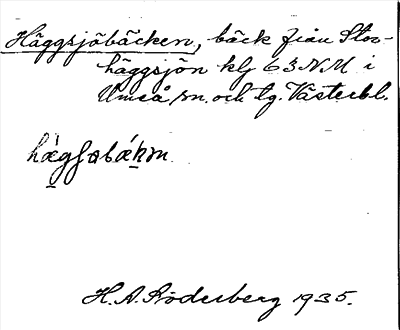 Häggsjöbäcken, bäck från Stor-
häggsjön klj 63 NM i
Umeå sn. och tg. Västerbl.
H. A. Söderberg 1935.